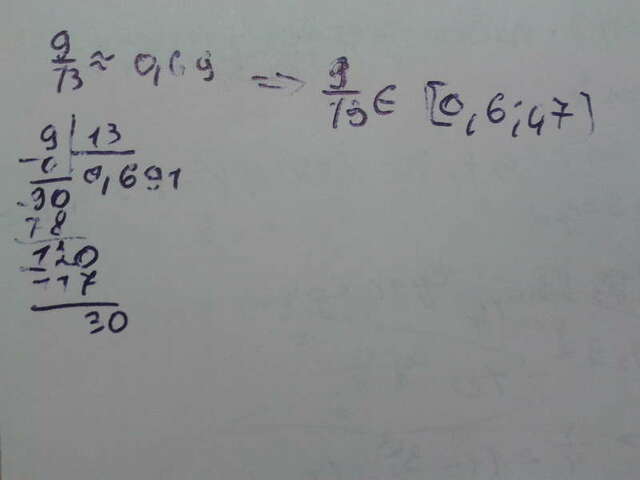 9/13 ≈ 0,69 => 9/13 ∈ [0,6;47]
9 | 13
- 0 | 0,691
90
78
120
- 117
30